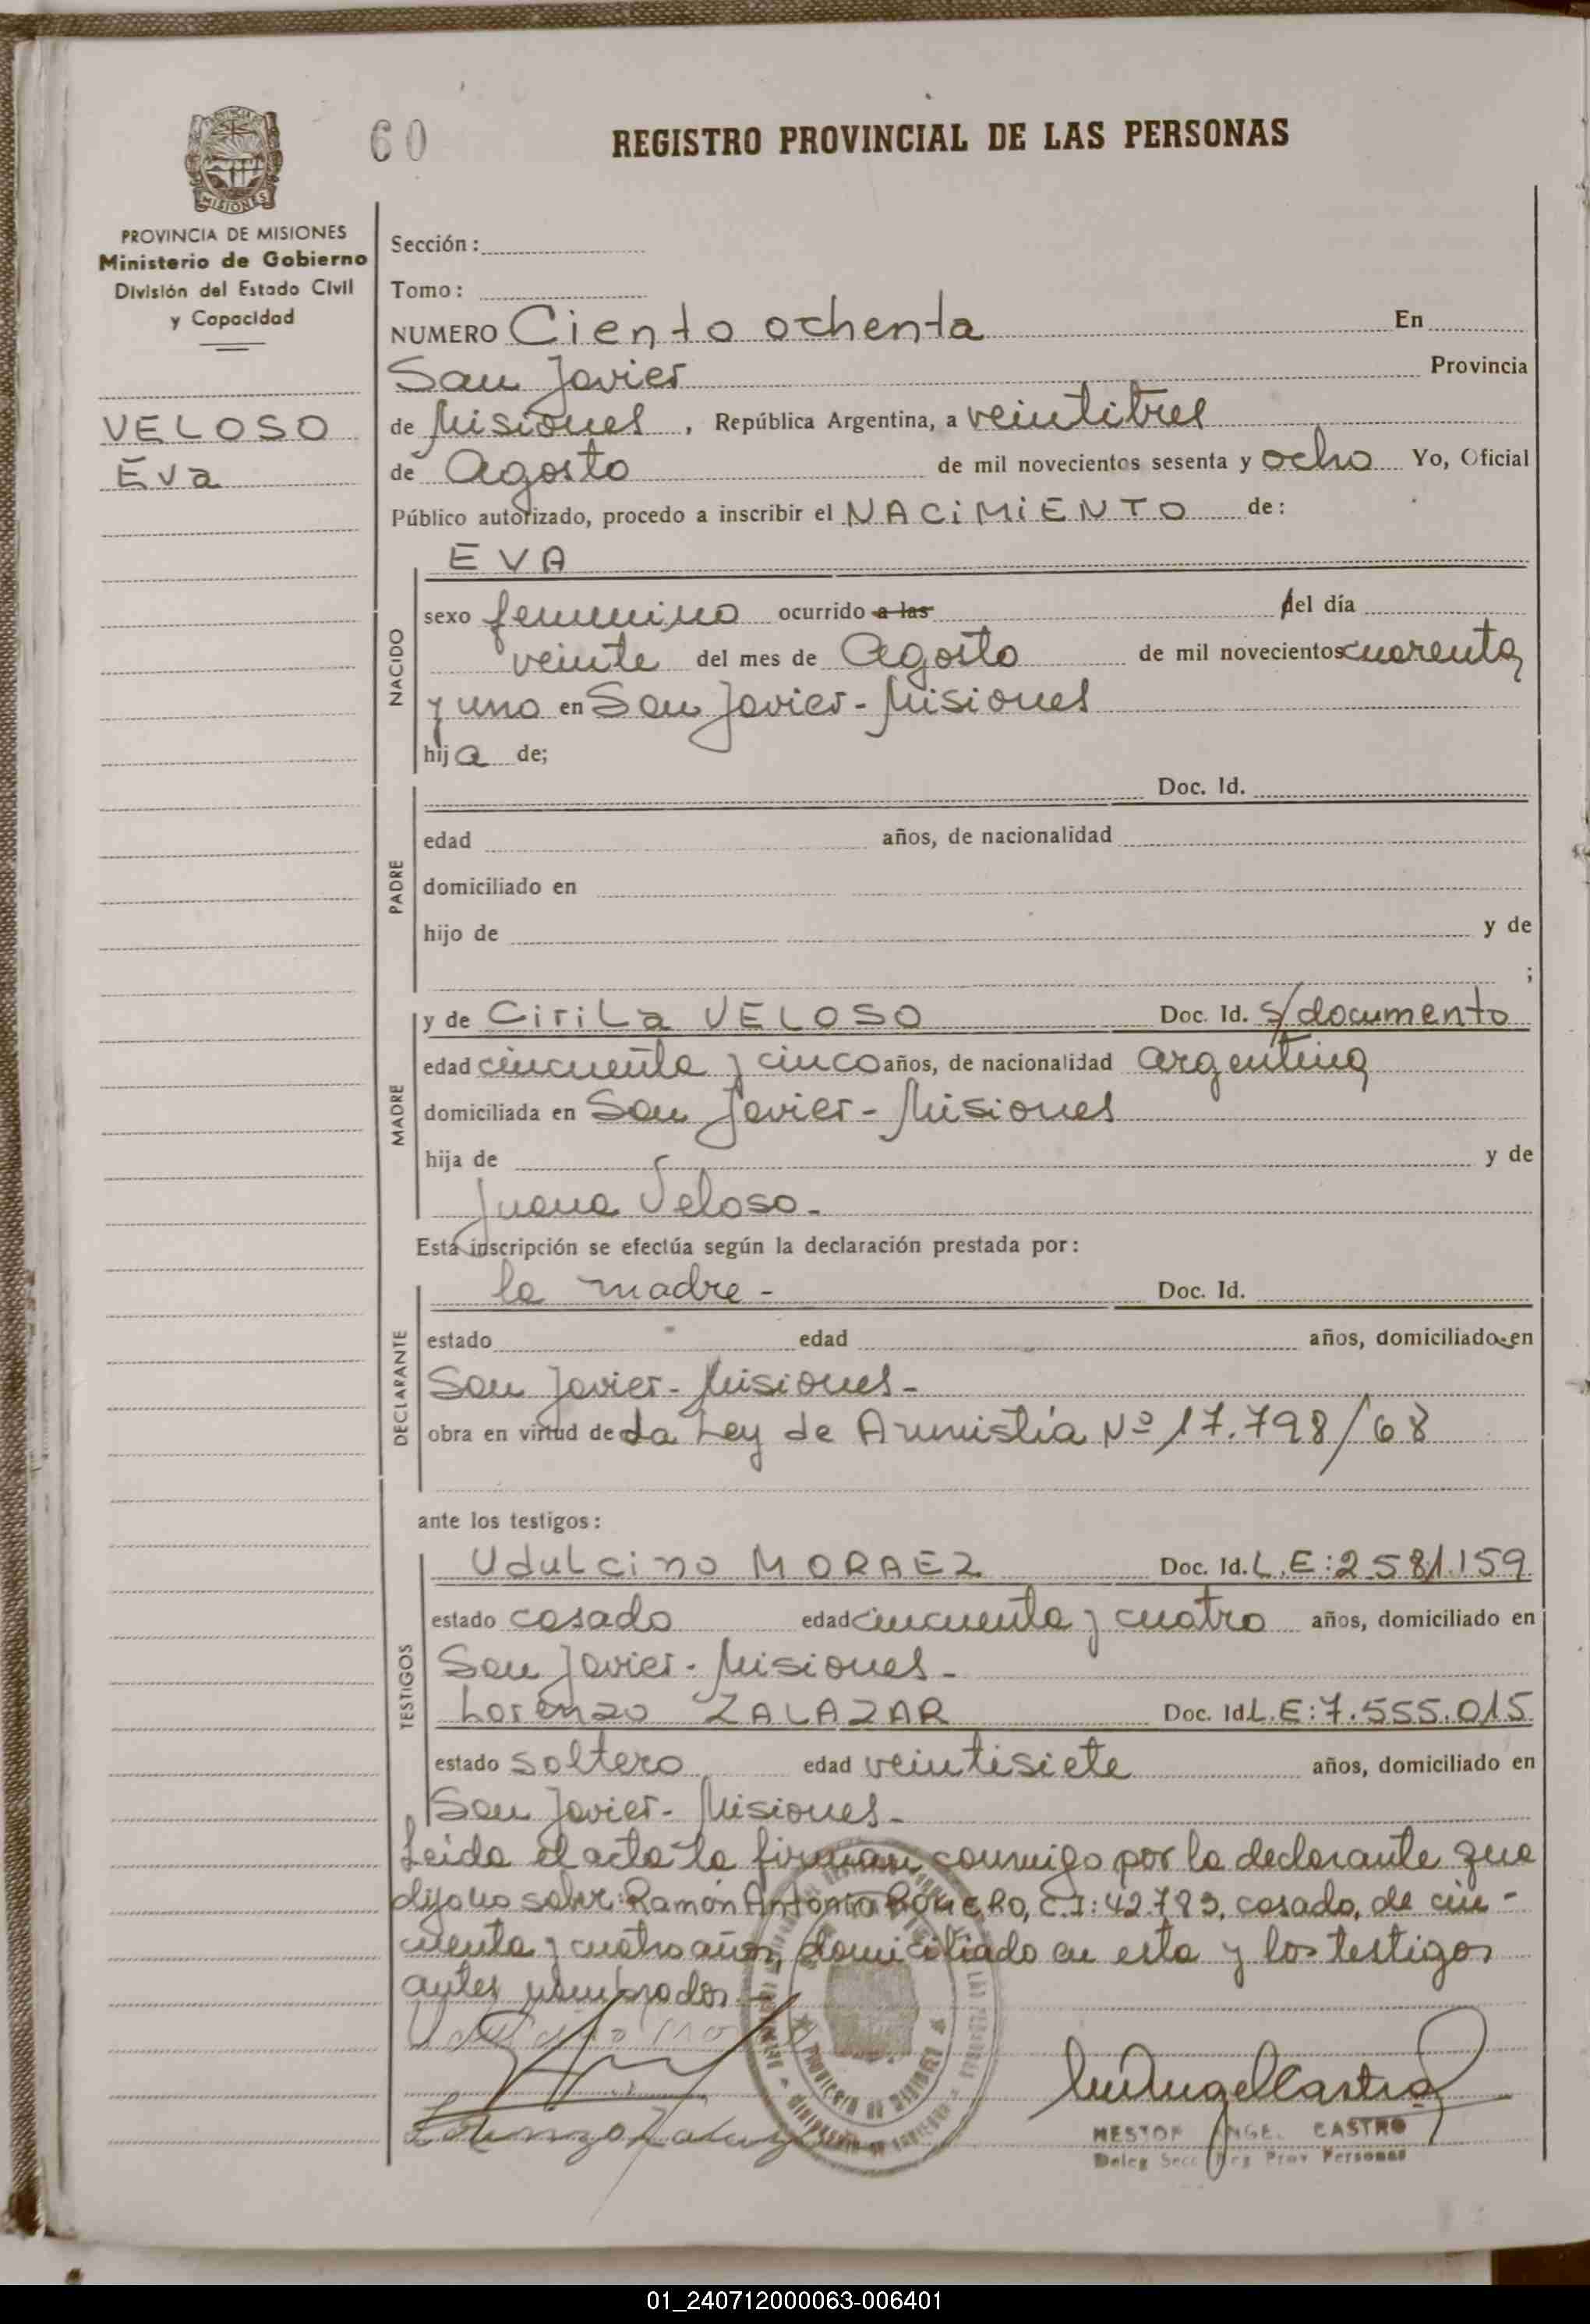 60
REGISTRO PROVINCIAL DE LAS PERSONAS
MISIONES
PROVINCIA DE MISIONES
Ministerio de Gobierno
División del Estado Civil
y Capacidad
VELOSO
Eva
Sección:
Tomo:
NUMERO Ciento ochenta En
San Javier Provincia
de Misiones, República Argentina, a veintitres
de Agosto de mil novecientos sesenta y ocho Yo, Oficial
Público autorizado, procedo a inscribir el NACIMIENTO de:
NACIDO
EVA
sexo femenino ocurrido a las del día
veinte del mes de Agosto de mil novecientos cuarenta
y uno en San Javier - Misiones
hija de;
PADRE
Doc. Id.
edad años, de nacionalidad
domiciliado en
hijo de y de
;
MADRE
y de Cirila VELOSO Doc. Id. s/documento
edad cincuenta y cinco años, de nacionalidad argentina
domiciliada en San Javier - Misiones
hija de y de
Juana Veloso.
Esta inscripción se efectúa según la declaración prestada por:
DECLARANTE
la madre - Doc. Id.
estado edad años, domiciliado en
San Javier - Misiones -
obra en virtud de La Ley de Amnistía Nº 17.798/68
ante los testigos:
TESTIGOS
Udulcino MORAEZ Doc. Id. L.E:2.581.159
estado casado edad cincuenta y cuatro años, domiciliado en
San Javier - Misiones -
Lorenzo ZALAZAR Doc. Id. L.E:7.555.015
estado soltero edad veintisiete años, domiciliado en
San Javier - Misiones -
Leida el acta la firman conmigo por la declarante que
dijo no saber: Ramón Antonio ROMERO, C.I: 42.783, casado, de cin-
cuenta y cuatro años, domiciliado en esta y los testigos
antes nombrados -
PROVINCIA DE MISIONES
Lorenzo Zalazar
NESTOR ANGEL CASTRO
Deleg Secc Reg Prov Personas
01_240712000063-006401